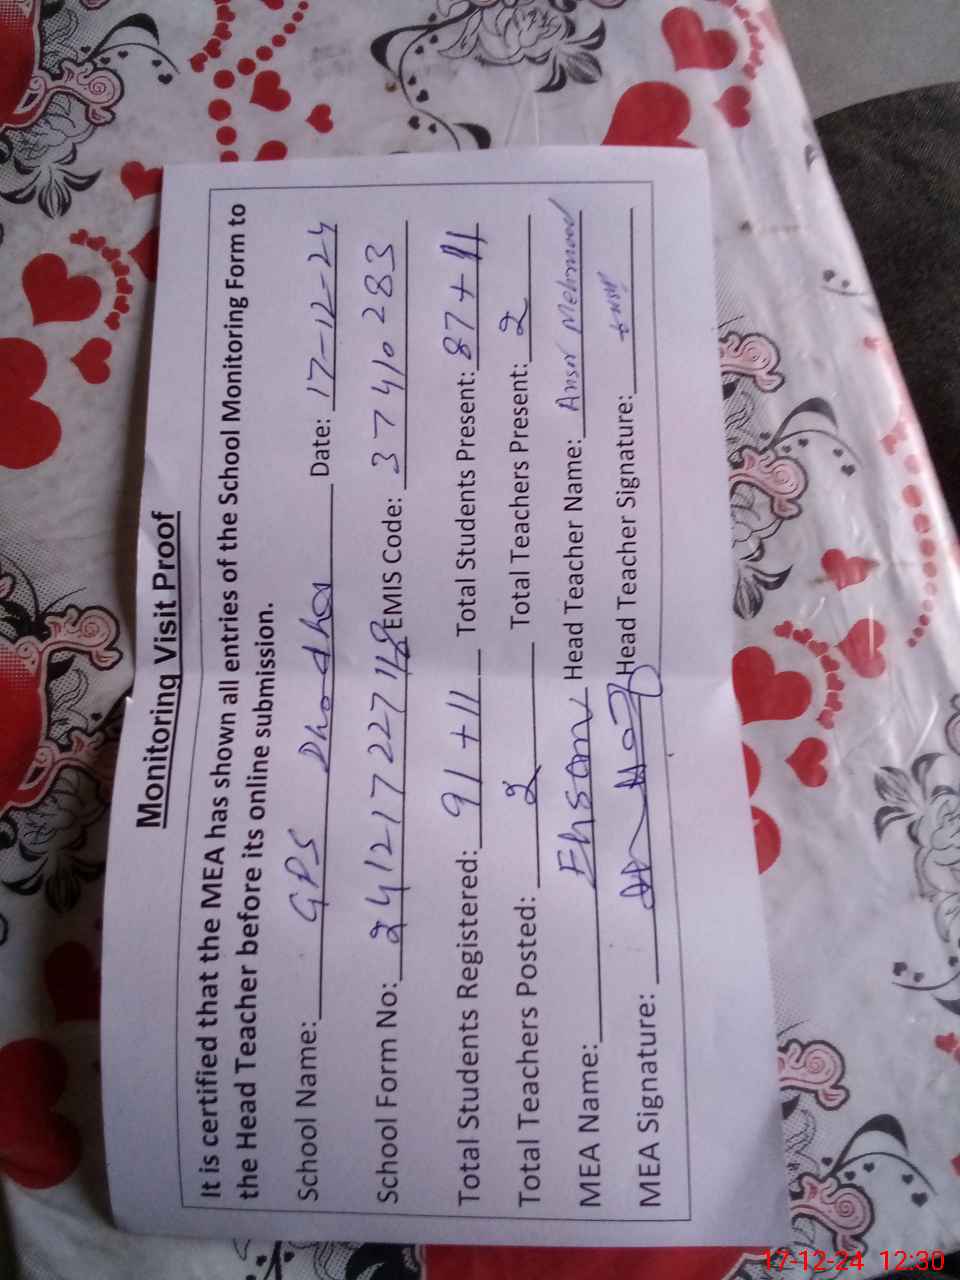 Monitoring Visit Proof
It is certified that the MEA has shown all entries of the School Monitoring Form to
the Head Teacher before its online submission.
School Name: GPS Dhodha Date: 17-12-24
School Form No: EMIS Code: 37410283
Total Students Registered: 91+11 Total Students Present: 87+11
Total Teachers Posted: 2 Total Teachers Present: 2
MEA Name: Ehsan Head Teacher Name: Ansir Mehmood
MEA Signature: Head Teacher Signature:
17-12-24 12:30